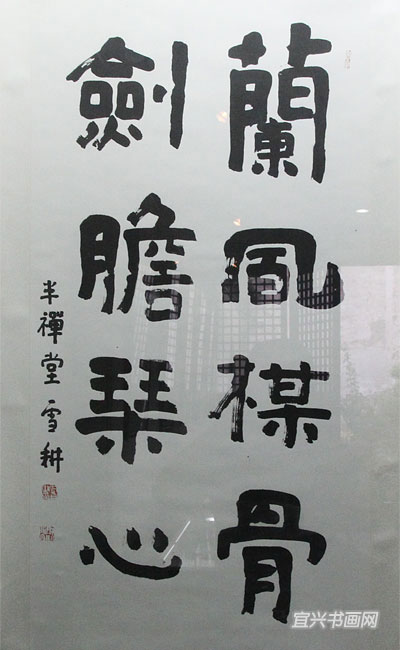 蘭風楳骨
劍膽琹心
半禪堂雪耕
宜兴书画网